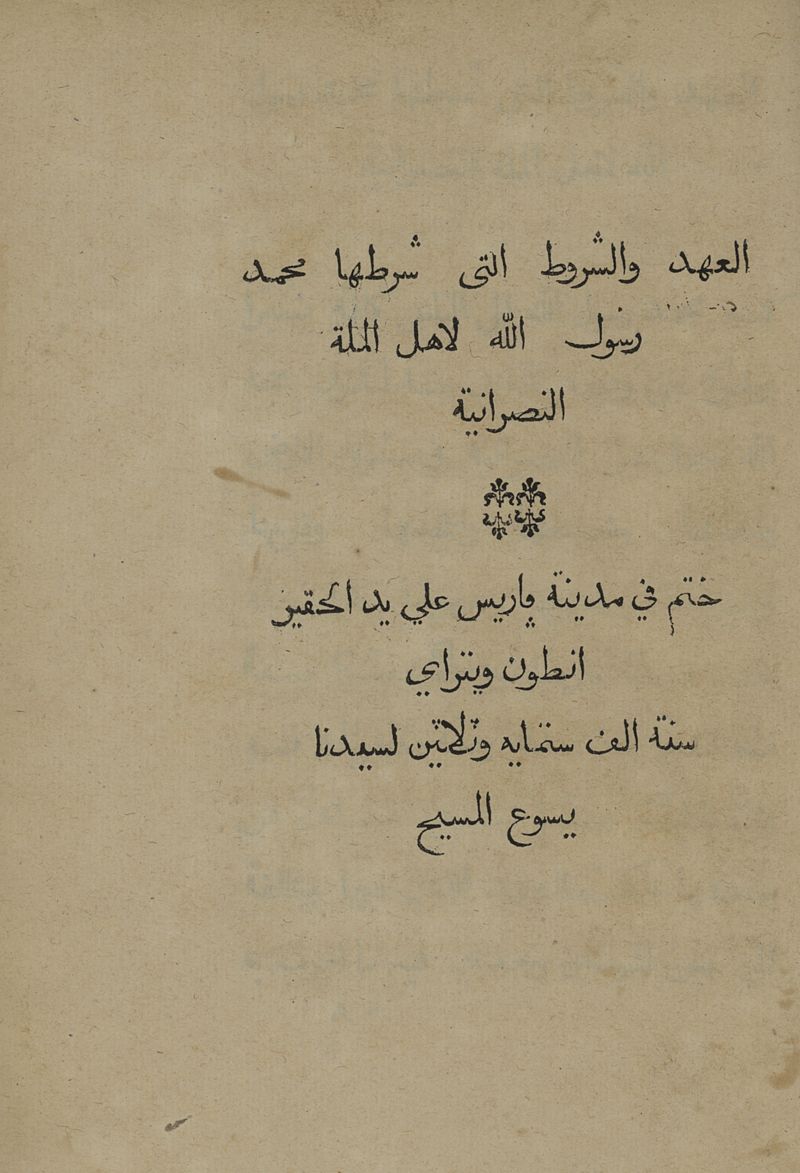 العهد والشروط التى شرطها محمد
رسول الله لاهل الملة
النصرانية
ختم في مدينة پاريس علي يد الحقير
انطون ويتراي
سنة الف ستمايه وثلاثين لسيدنا
يسوع المسيح